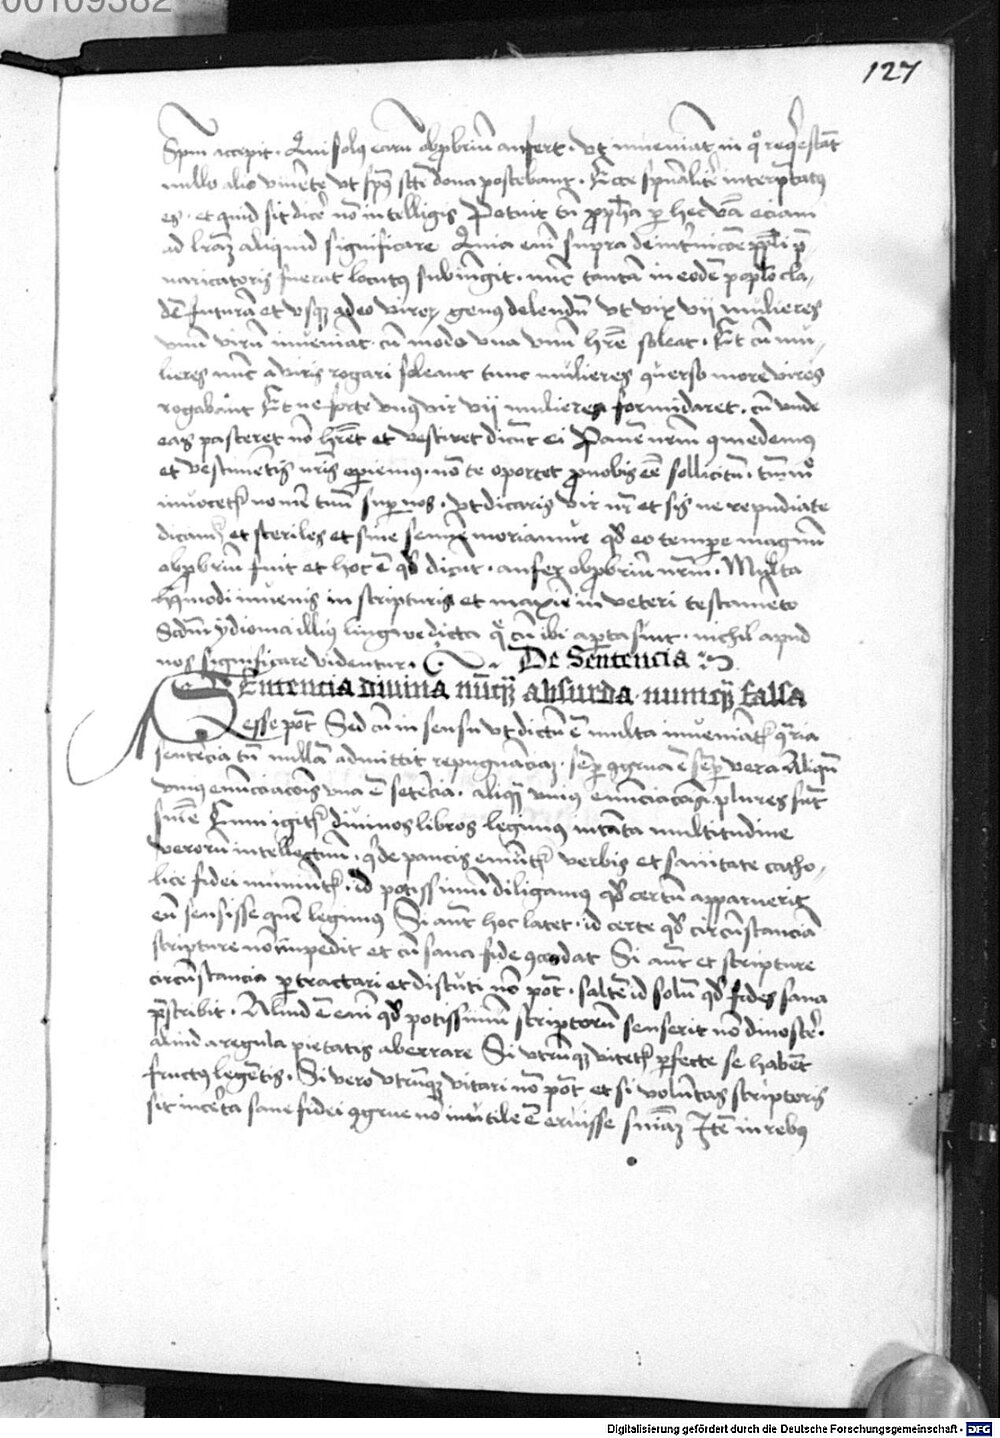 00109382
127
Spm accepit. Qui solus earu obprobriu aufert. ut inueniat in quo requiescat
nullo alio viuente ut spus scti dona postebant. Ecce spualiter interptatus
es. et quid sit dicere no intelligis Potuit tn propha per hec uba eciam
ad lram aliquid significare Quia eni supra de interitu ppli p
uaricatoris fuerat locutus subiungit. nunc tanta in eode poplo cla
de futura et usque adeo viror genus delendu ut vix vii mulieres
unu viru inueniat cu modo una unu hre soleat. Et cu mu
lieres nunc a viris rogari soleant tunc mulieres querso more viros
rogabant Et ne forte unus vir vii mulieres formidaret. cu unde
eas pasceret no hret et vestiret dicunt ei Pane nrm comedemus
et vestimetis nris operiemur. no te oportet pro nobis ee sollicitu. tmmo
inuocetur nomen tuu super nos. ut dicaris vir nr et sis ne repudiate
dicamur et steriles et sine semine moriamur qd eo tempore magnu
obprobriu fuit et hoc e qd dicunt. aufer obprobriu nrm. Multa
huiusmodi inuenis in scripturis et maxime in veteri testameto
Scdm ydioma illius lingue dicta que cu ibi aperta sint. nichil apud
nos significare videntur. De Sentencia
Sentencia diuina nuquam absurda. numquam falsa
esse pot Sed cu in sensu ut dictu e multa inueniatur contraria
sentencia tn nulla admittit repugnaciam. semper congrua e semper vera Aliqn
unius enunciacois una e setencia. aliqn unius enunciacois plures sunt
snie Cum igitur diuinos libros legimus in tanta multitudine
verorum intellectuu. que de paucis eruutur verbis et sanitate catho
lice fidei muniutur. id potissimu diligamus qd certu apparuerit
eu sensisse que legimus Si aut hoc latet. id certe qd circustancia
scripture no impedit et cu sana fide concordat Si aut et scripture
circustancia pertractari et discuti no pot. salte id solu qd fides sana
prescribit. Aliud e eni qd potissimu scriptoru senserit no dinoscere.
aliud a regula pietatis aberrare Si utrumque vitetur perfecte se habet
fructus legetis. Si vero utrumque vitari no pot et si voluntas scriptoris
sit incerta sane fidei congrue no inutile e eruisse sniam Ite in rebus
Digitalisierung gefördert durch die Deutsche Forschungsgemeinschaft - DFG